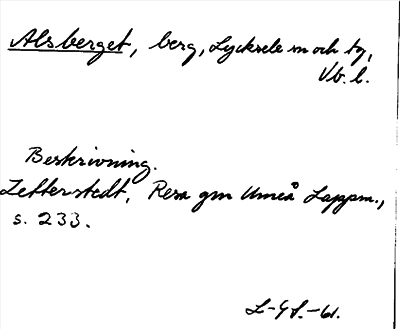 Alsberget, berg, Lycksele sn och tg,
Vb. l.
Beskrivning.
Zetterstedt, Resa gm Umeå Lappm.,
s. 233.